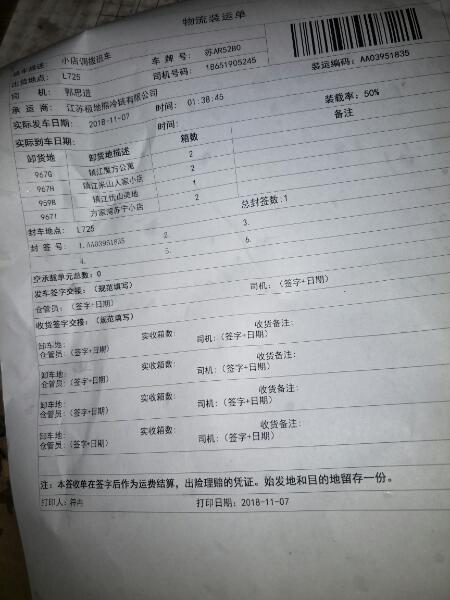 物流装运单
小店调拨班车
车 牌 号: 苏AR52B0
出货地点: L725
司机号码: 18651905245
装运编码: AA03951835
司 机: 郭思进
承 运 商: 江苏极地熊冷链有限公司
实际发车日期: 2018-11-07 时间: 01:38:45 装载率: 50%
实际到车日期: 时间: 备注
卸货地 卸货地描述 箱数
967G 镇江聚方公寓 2
967H 镇江米山人家小店 2
959B 镇江优山美地 1
967I 方家湾苏宁小店 2
封车地点: L725 总封签数:1
封 签 号: 1.AA03951835 2. 3.
4. 5. 6.
空承载单元总数: 0
发车签字交接: (规范填写)
仓管员: (签字+日期) 司机: (签字+日期)
收货签字交接: (规范填写)
卸车地: 实收箱数: 收货备注:
仓管员: (签字+日期) 司机: (签字+日期)
卸车地: 实收箱数: 收货备注:
仓管员: (签字+日期) 司机: (签字+日期)
卸车地: 实收箱数: 收货备注:
仓管员: (签字+日期) 司机: (签字+日期)
卸车地: 实收箱数: 收货备注:
仓管员: (签字+日期) 司机: (签字+日期)
注: 本签收单在签字后作为运费结算, 出险理赔的凭证。始发地和目的地留存一份。
打印人: 打印日期: 2018-11-07